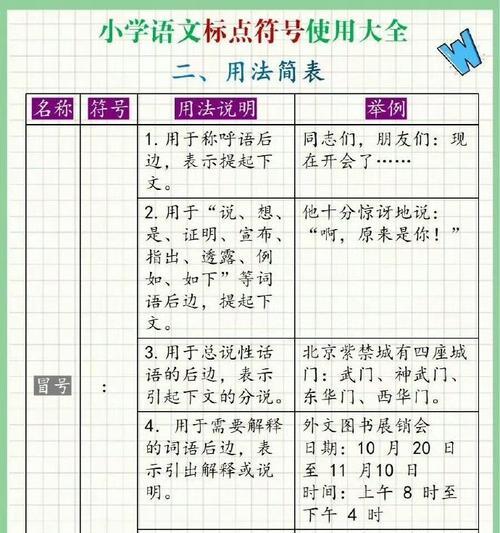 小学语文标点符号使用大全
W
二、用法简表
名称 符号 用法说明 举例
1. 用于称呼语后
边，表示提起下
文。
同志们，朋友们：现
在开会了……
2. 用于“说、想、
是、证明、宣布、
指出、透露、例
如、如下”等词
语后边，提起下
文。
他十分惊讶地说：
“啊，原来是你！”
冒号
：
3. 用于总说性话
语的后边，表示
引起下文的分说。
北京紫禁城有四座城
门：武门、神武门、
东华门、西华门。
4. 用于需要解释
的词语后边，表
示引出解释或说
明。
外文图书展销会
日期：10 月 20 日
至 11 月10 日
时间：上午 8 时至
下午 4 时